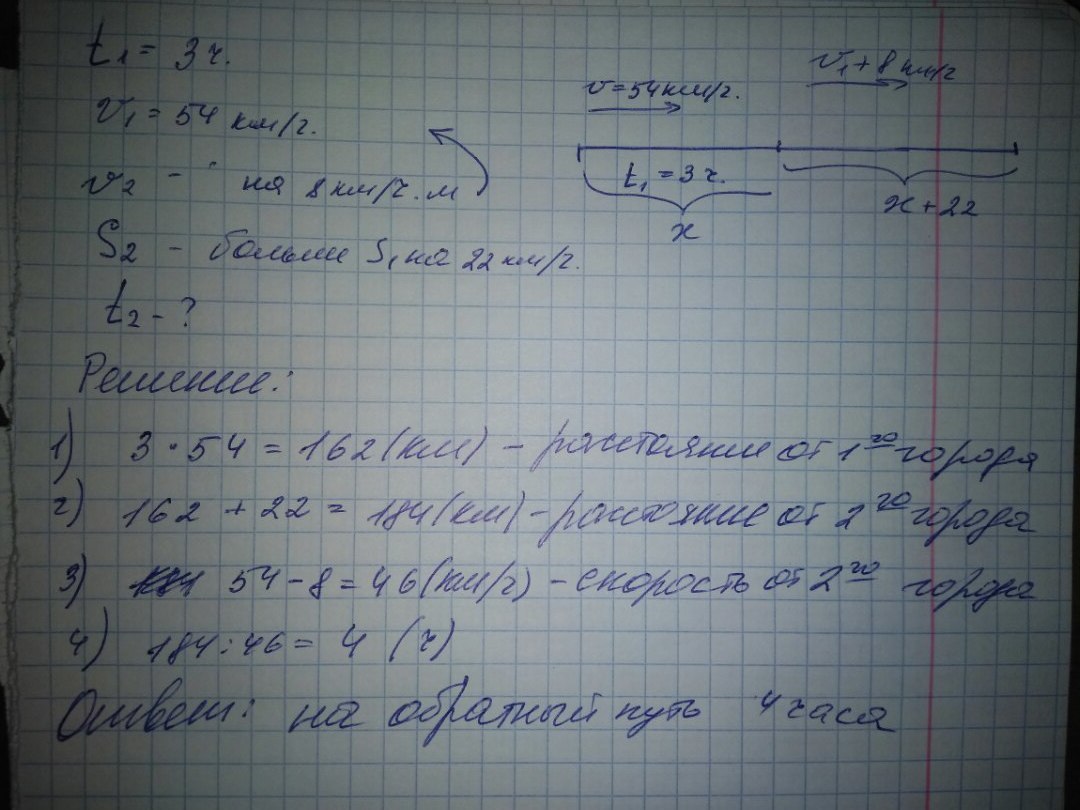 t₁ = 3 ч.
v₁ = 54 км/ч.
v₂ - на 8 км/ч. м
S₂ - больше S₁ на 22 км/ч.
t₂ - ?
v = 54 км/ч.
v₁ + 8 км/ч
t₁ = 3 ч.
x
x + 22
Решение:
1) 3 · 54 = 162 (км) - расстояние от 1го города
2) 162 + 22 = 184 (км) - расстояние от 2го города
3) 54 - 8 = 46 (км/ч) - скорость от 2го города
4) 184 : 46 = 4 (ч)
Ответ: на обратный путь 4 часа